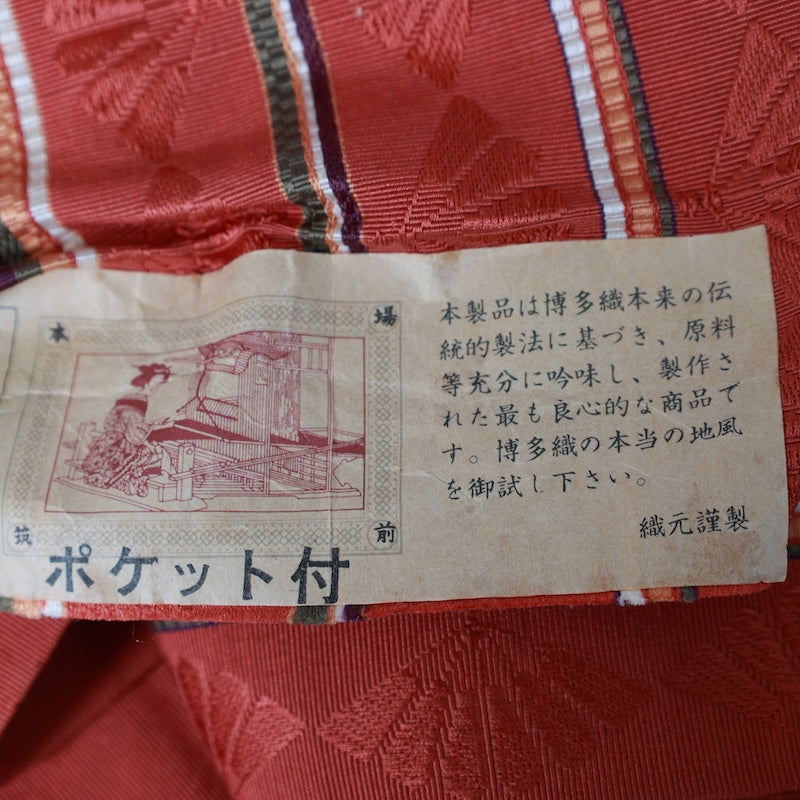 本 場
筑 前
ポケット付
本製品は博多織本来の伝
統的製法に基づき、原料
等充分に吟味し、製作さ
れた最も良心的な商品で
す。博多織の本当の地風
を御試し下さい。
織元謹製